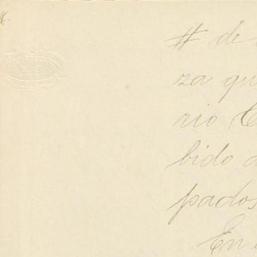 # de
za qu
rio
bido
pados
En